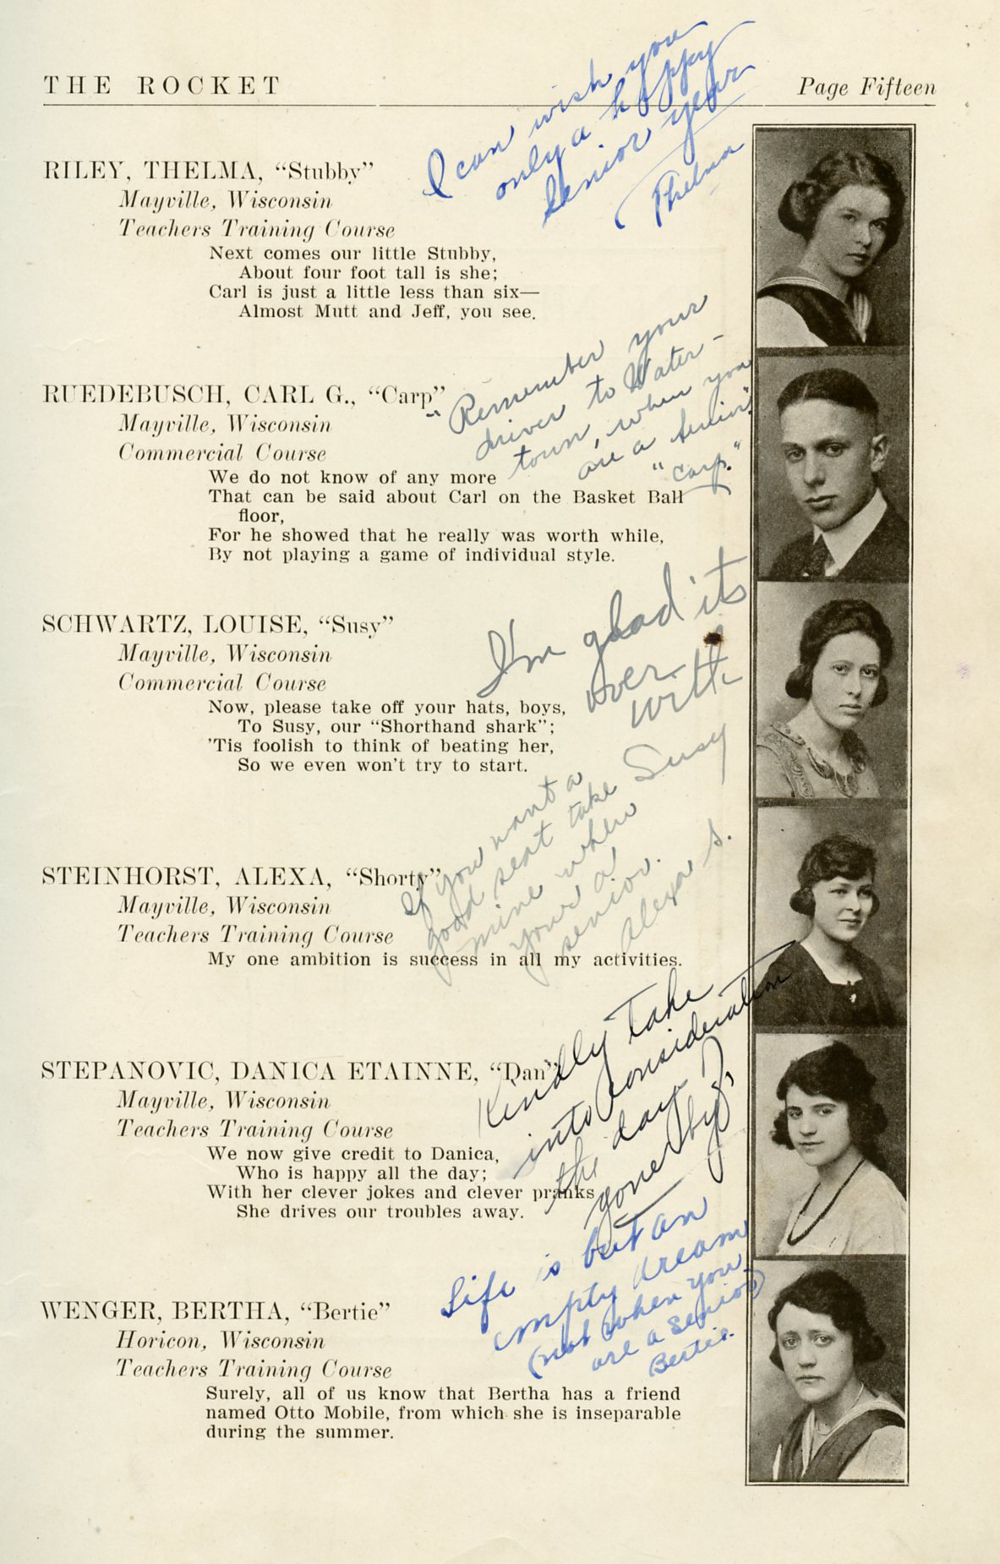 THE ROCKET
Page Fifteen
I can wish you
only a happy
senior year
Thelma
RILEY, THELMA, “Stubby”
Mayville, Wisconsin
Teachers Training Course
Next comes our little Stubby,
About four foot tall is she;
Carl is just a little less than six—
Almost Mutt and Jeff, you see.
"Remember your
driver to Water-
town, when you
are a senior."
"Carp."
RUEDEBUSCH, CARL G., “Carp”
Mayville, Wisconsin
Commercial Course
We do not know of any more
That can be said about Carl on the Basket Ball
floor,
For he showed that he really was worth while,
By not playing a game of individual style.
I'm glad its
over with
Susy
SCHWARTZ, LOUISE, “Susy”
Mayville, Wisconsin
Commercial Course
Now, please take off your hats, boys,
To Susy, our “Shorthand shark”;
'Tis foolish to think of beating her,
So we even won't try to start.
If you want a
good seat take
mine when
your a
senior.
Alexa S.
STEINHORST, ALEXA, “Shorty”
Mayville, Wisconsin
Teachers Training Course
My one ambition is success in all my activities.
Kindly take
into consideration
the day
gone by
STEPANOVIC, DANICA ETAINNE, “Dan”
Mayville, Wisconsin
Teachers Training Course
We now give credit to Danica,
Who is happy all the day;
With her clever jokes and clever pranks
She drives our troubles away.
Life is but an
empty dream
(not when you
are a senior)
Bertie.
WENGER, BERTHA, “Bertie”
Horicon, Wisconsin
Teachers Training Course
Surely, all of us know that Bertha has a friend
named Otto Mobile, from which she is inseparable
during the summer.